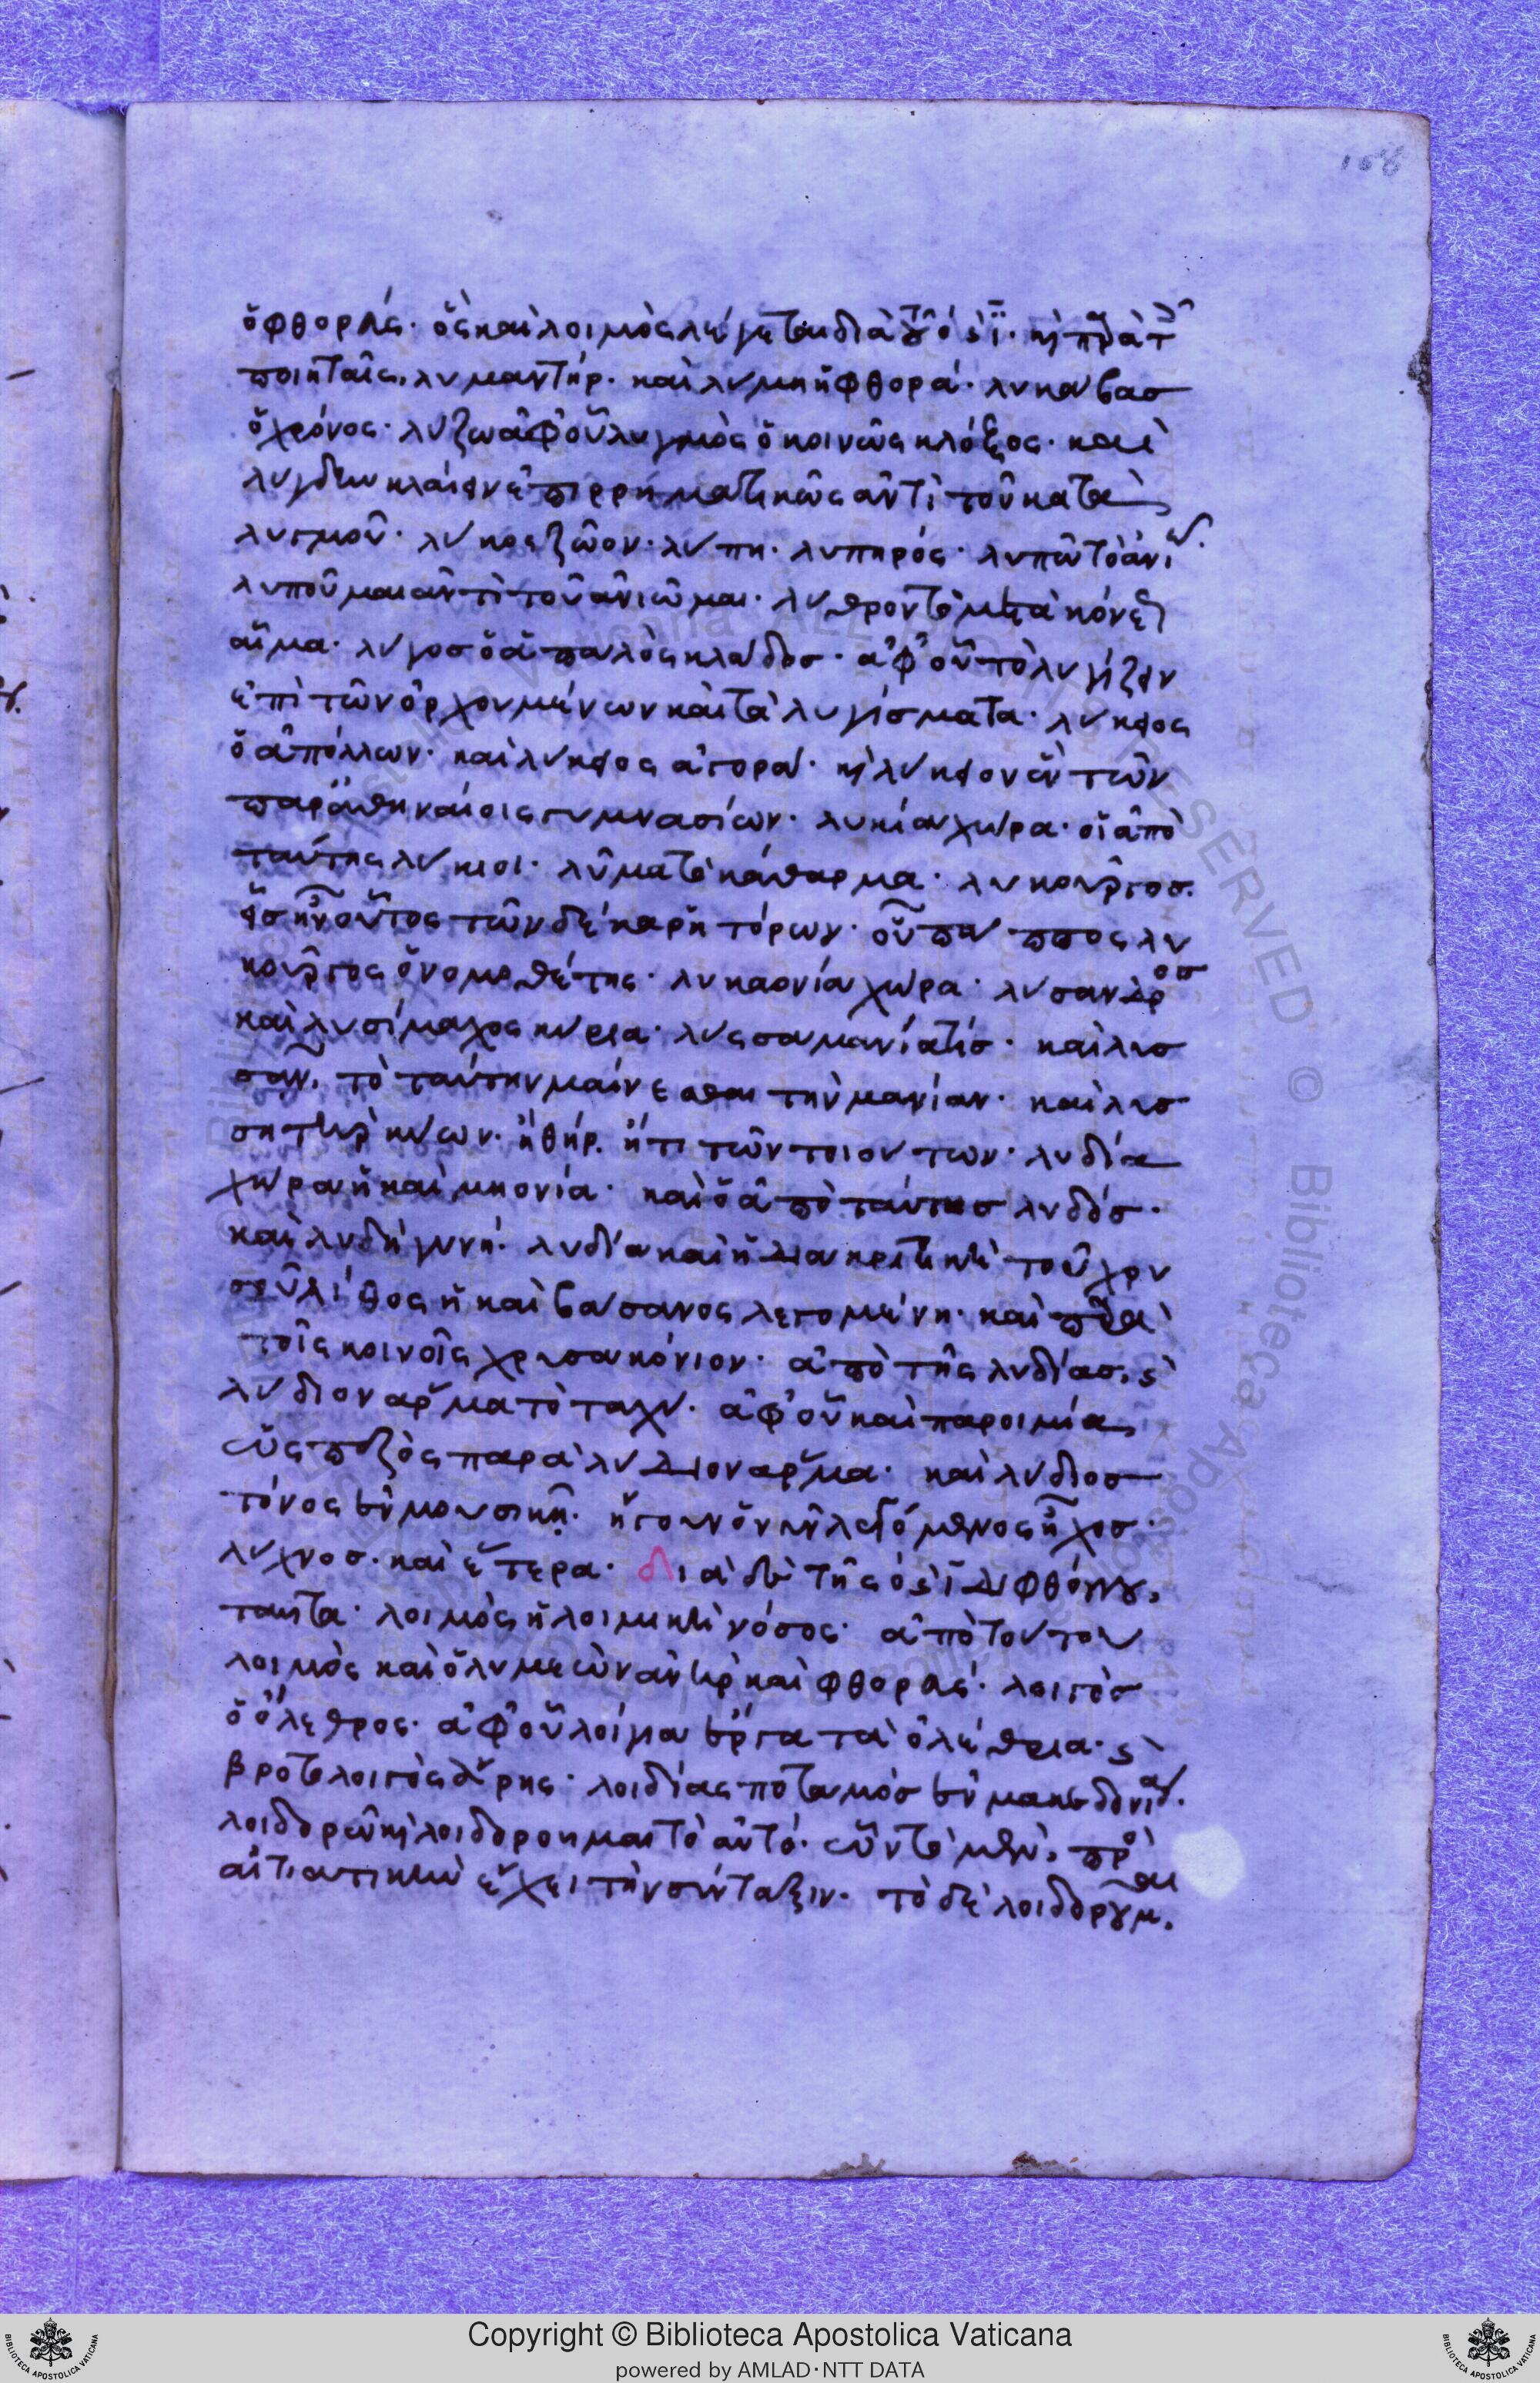 108
ὁ φθορεύς· ὃς καὶ λοιμὸς λέγεται διὰ τοῦ ο ϛ ϊ· κ παρὰ τ
ποιηταῖς, λυμαντήρ. καὶ λύμη ἡ φθορά· λυκάβασ
ὁ χρόνος· λύζω ἀφ' οὗ λυγμὸς ὁ κοινῶς κλόξος· καὶ
λύγδην κλάειν ἐπιρρηματικῶς ἀντὶ τοῦ κατὰ
λυγμοῦ· λύκος ζῶον· λύπη· λυπηρός· λυπῶ τὸ ἀνι
λυποῦμαι ἀντὶ τοῦ ἀνιῶμαι· λύθρον τὸ μετὰ κόνεως
αἷμα· λύγοσ ὁ ἁπαλὸς κλάδοσ· ἀφ' οὗ τὸ λυγίζειν
ἐπὶ τῶν ὀρχουμένων καὶ τὰ λυγίσματα· λύκειος
ὁ ἀπόλλων· καὶ λύκειος ἀγορά· κ λύκειον ἓν τῶν
παρ' ἀθηναίοις γυμνασίων· λυκία χώρα· οἱ ἀπὸ
ταύτης λύκιοι· λῦμα τὸ κάθαρμα· λυκοῦργοσ
εἷσ ἦν οὗτος τῶν δέκα ῥητόρων· οὗ πάππος λυ
κοῦργος ὁ νομοθέτης· λυκαονία χώρα· λύσανδροσ
καὶ λυσίμαχος κύρια· λύσσα μανία τίσ· καὶ λυσ
σᾶν, τὸ ταύτην μαίνεσθαι τὴν μανίαν· καὶ λυσ
σητὴρ κύων· ἢ θήρ· ἤ τι τῶν τοιούτων· λυδία
χώρα ἡ καὶ μηονία· καὶ ὁ ἀπὸ ταύτησ λυδόσ·
καὶ λυδὴ γυνή· λυδία καὶ ἡ διακριτικὴ τοῦ χρυ
σοῦ λίθος ἡ καὶ βάσανος λεγομένη· καὶ παρὰ
τοῖς κοινοῖς χρυσακόνιον· ἀπὸ τῆς λυδίασ, ϛ
λύδιον ἅρμα τὸ ταχύ· ἀφ' οὗ καὶ παροιμία,
ὡς πεζὸς παρὰ λύδιον ἅρμα· καὶ λύδιοσ
τόνος ἐν μουσικῇ· ἤγουν ὁ νῦν λεγόμενος ἦχοσ·
λύχνοσ· καὶ ἕτερα· διὰ δὲ τῆς ο ϛ ϊ διφθόγγου,
ταῦτα· λοιμὸς ἡ λοιμικὴ νόσος· ἀπὸ τούτου
λοιμὸς καὶ ὁ λυμεὼν ἀνὴρ καὶ φθορεύς· λοιγὸσ
ὁ ὄλεθρος· ἀφ' οὗ λοίγια ἔργα τὰ ὀλέθρια· ϛ
βροτολοιγὸς ἄρης· λοιδίας ποταμὸσ ἐν μακεδονίᾳ·
λοιδορῶ κ λοιδοροῦμαι τὸ αὐτό· ὧν τὸ μὲν, πρὸς
αἰτιατικὴν ἔχει τὴν σύνταξιν· τὸ δὲ λοιδοροῦμαι,